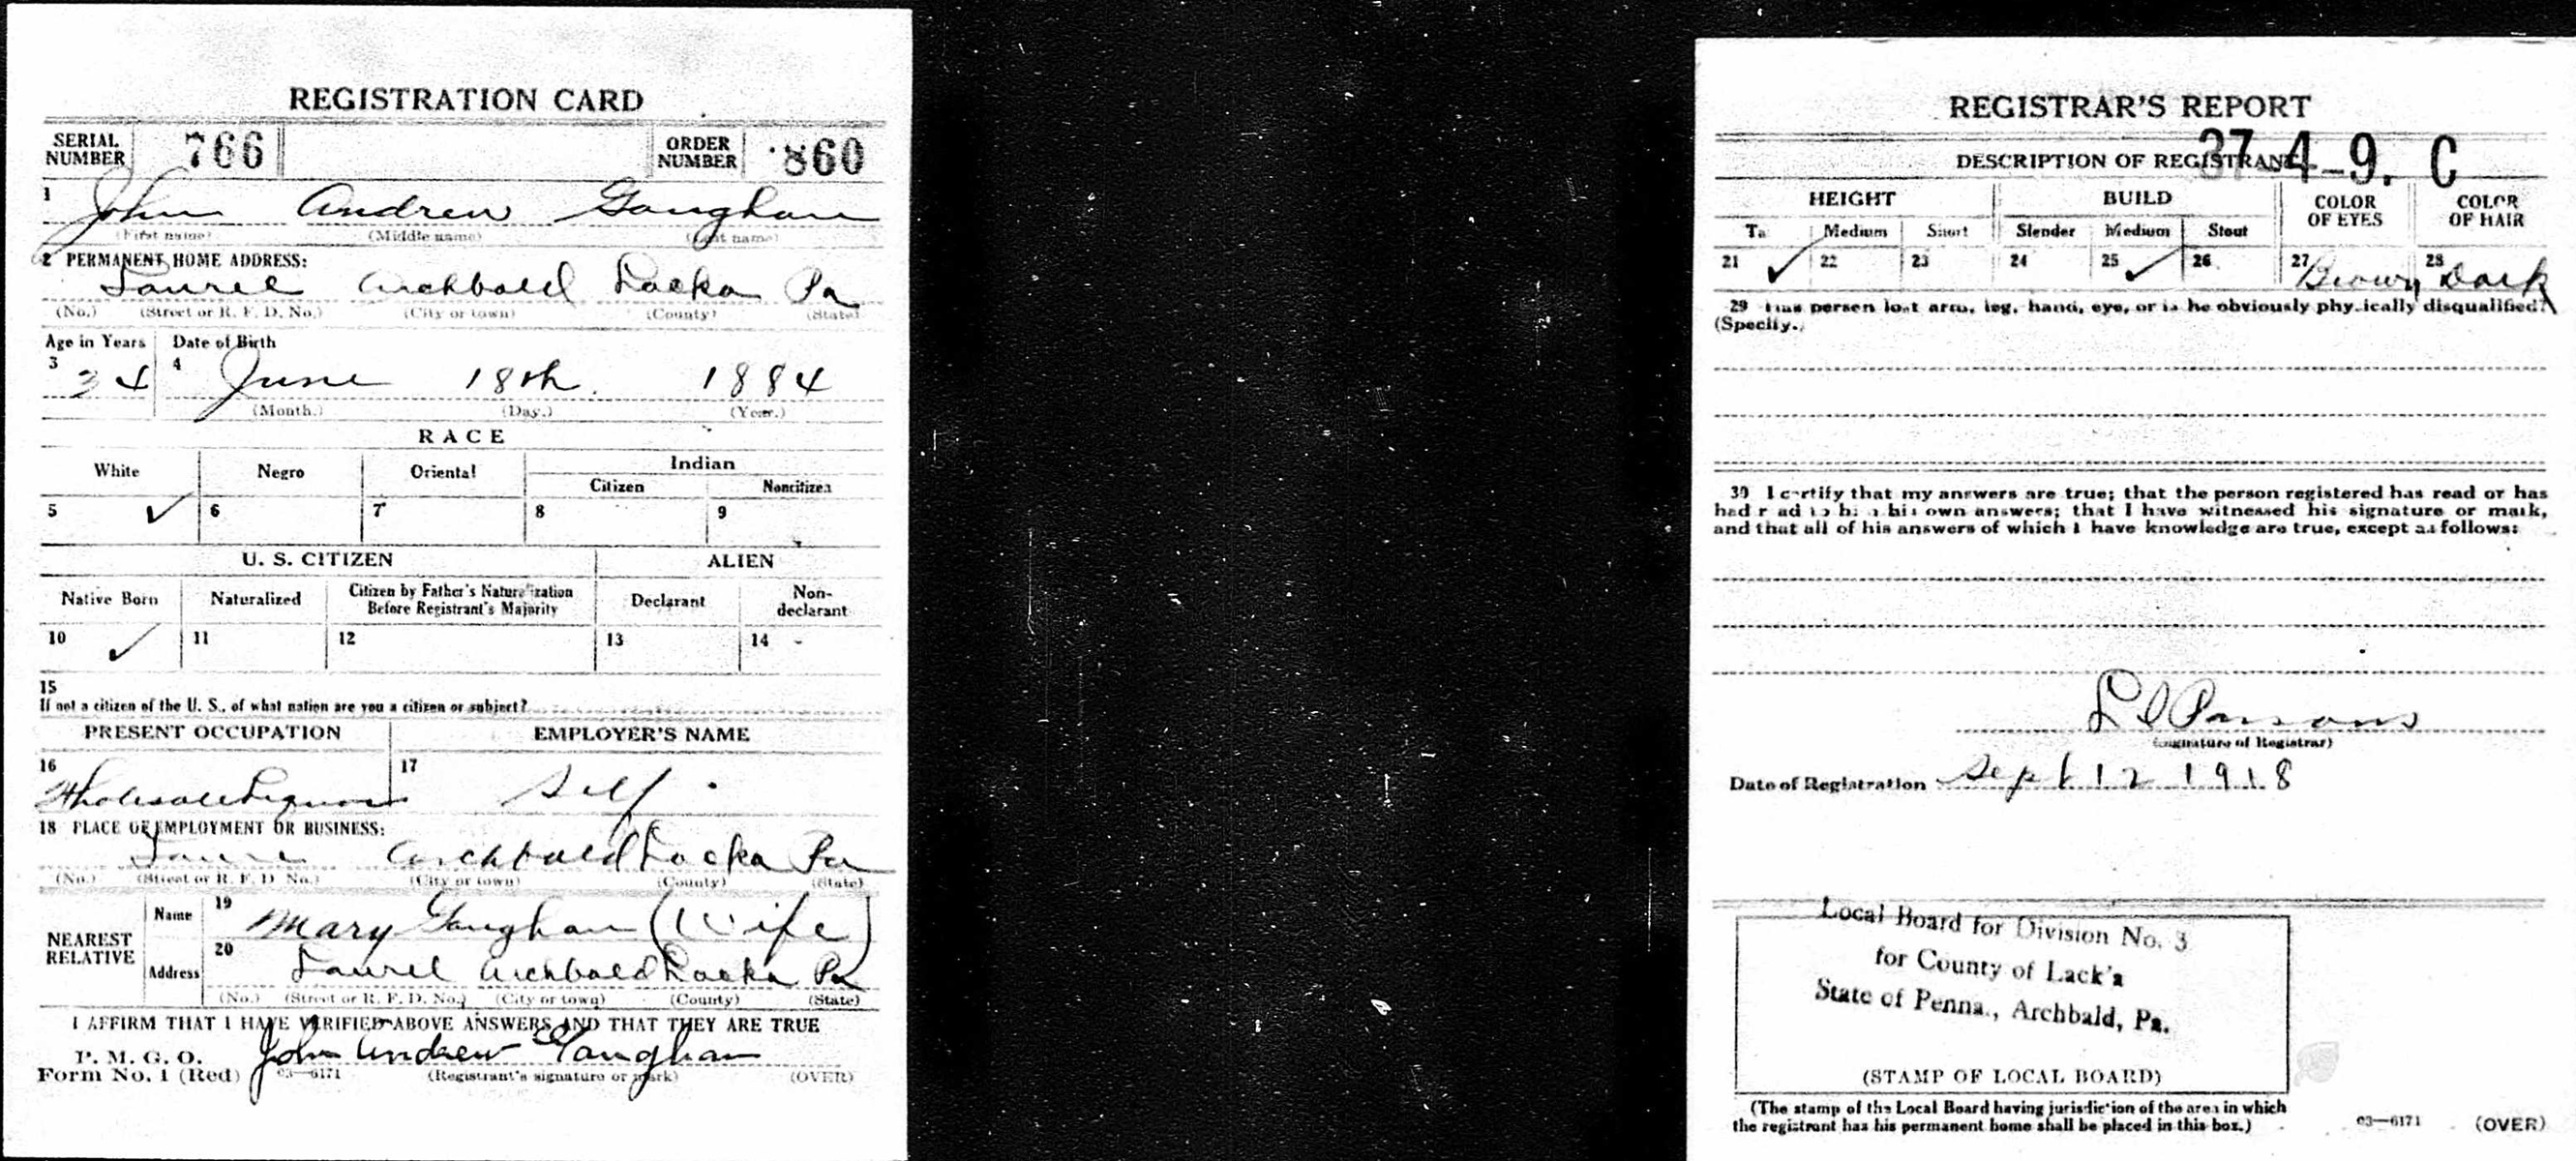 REGISTRATION CARD
SERIAL NUMBER 766 ORDER NUMBER 860
1 John Andrew Gaughan
(First name) (Middle name) (Last name)
2 PERMANENT HOME ADDRESS:
Laurel Archbald Lacka Pa
(No.) (Street or R. F. D. No.) (City or town) (County) (State)
Age in Years Date of Birth
3 34 4 June 18th. 1884
(Month.) (Day.) (Year.)
RACE
White Negro Oriental Indian
Citizen Noncitizen
5 ✓ 6 7 8 9
U. S. CITIZEN ALIEN
Native Born Naturalized Citizen by Father's Naturalization Before Registrant's Majority Declarant Non-declarant
10 ✓ 11 12 13 14 -
15
If not a citizen of the U. S., of what nation are you a citizen or subject?
PRESENT OCCUPATION EMPLOYER'S NAME
16 Wholesale Liquor 17 Self
18 PLACE OF EMPLOYMENT OR BUSINESS:
Laurel Archbald Lacka Pa
(No.) (Street or R. F. D. No.) (City or town) (County) (State)
NEAREST RELATIVE
Name 19 Mary Gaughan (Wife)
Address 20 Laurel Archbald Lacka Pa
(No.) (Street or R. F. D. No.) (City or town) (County) (State)
I AFFIRM THAT I HAVE VERIFIED ABOVE ANSWERS AND THAT THEY ARE TRUE
P. M. G. O.
Form No. 1 (Red) John Andrew Gaughan
03—6171 (Registrant's signature or mark) (OVER)
REGISTRAR'S REPORT
37-4-9. C
DESCRIPTION OF REGISTRANT
HEIGHT BUILD COLOR OF EYES COLOR OF HAIR
Tall Medium Short Slender Medium Stout
21 ✓ 22 23 24 25 ✓ 26 27 Brown 28 Dark
29 Has person lost arm, leg, hand, eye, or is he obviously physically disqualified?
(Specify.)
30 I certify that my answers are true; that the person registered has read or has
had read to him his own answers; that I have witnessed his signature or mark,
and that all of his answers of which I have knowledge are true, except as follows:
Parsons
(Signature of Registrar)
Date of Registration Sept 12 1918
Local Board for Division No. 3
for County of Lack'a
State of Penna., Archbald, Pa.
(STAMP OF LOCAL BOARD)
(The stamp of the Local Board having jurisdiction of the area in which
the registrant has his permanent home shall be placed in this box.)
03—6171 (OVER)